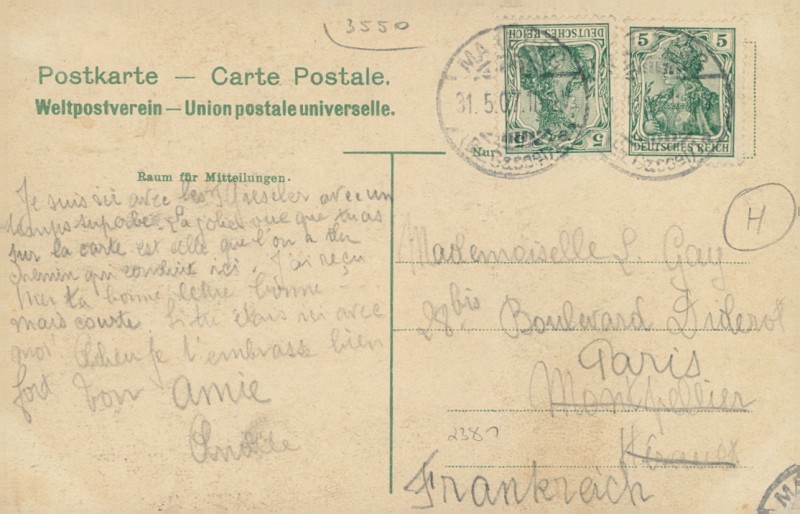 3550
Postkarte — Carte Postale.
Weltpostverein — Union postale universelle.
Raum für Mitteilungen.
Je suis ici avec les avec un
temps superbe. La jolie vue que tu as
sur la carte est celle que l'on a du
chemin qui conduit ici. J'ai reçu
hier ta bonne lettre bonne
mais courte. Si tu étais ici avec
moi je t'embrasse bien
fort ton amie
DEUTSCHES REICH
5
5 5
DEUTSCHES REICH
31.5.07.
Nur
H
Mademoiselle L. Gay
28 bis Boulevard Diderot
Paris
Montpellier
Hérault
2381
Frankreich
MA